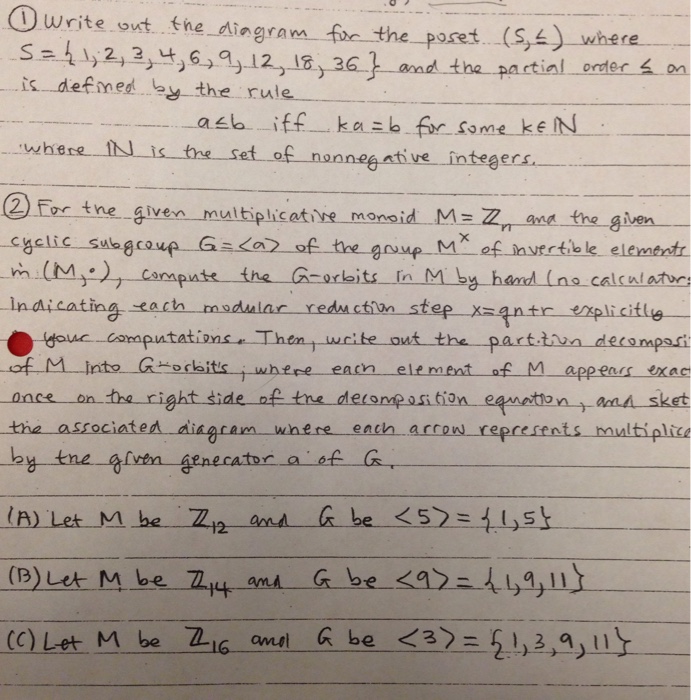 ① Write out the diagram for the poset (S,≤) where
S = {1,2,3,4,6,9,12,18,36} and the partial order ≤ on
is defined by the rule
a≤b iff ka=b for some k∈ℕ
where ℕ is the set of nonnegative integers.
② For the given multiplicative monoid M=ℤₙ and the given
cyclic subgroup G=<a> of the group Mˣ of invertible elements
in (M,•), compute the G-orbits in M by hand (no calculator:
indicating each modular reduction step x=qn+r explicitly
your computations. Then, write out the partition decomposi
of M into G-orbits, where each element of M appears exac
once on the right side of the decomposition equation, and sket
the associated diagram where each arrow represents multiplica
by the given generator a of G.
(A) Let M be ℤ₁₂ and G be <5> = {1,5}
(B) Let M be ℤ₁₄ and G be <9> = {1,9,11}
(C) Let M be ℤ₁₆ and G be <3> = {1,3,9,11}